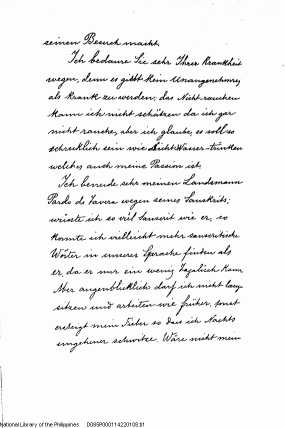 seinen Besuch macht.
Ich bedaure Sie sehr Ihrer Krankheit
wegen, denn es gibt kein Unangenehmeres
als krank zu werden; das Nicht rauchen
kann ich nicht schätzen da ich gar
nicht rauche, aber ich glaube, es soll so
schrecklich sein wie Nicht-Wasser-trinken
welches auch meine Passion ist.
Ich beneide sehr meinen Landsmann
Pardo de Tavera wegen seines Sanskrits;
wüsste ich so viel Sanscrit wie er, so
könnte ich vielleicht mehr sanscritische
Wörter in unserer Sprache finden als
er, da er nur ein wenig Tagalisch kann.
Aber augenblicklich darf ich nicht lang
sitzen und arbeiten wie früher, sonst
mein Fieber so dass ich Nachts
ungeheuer schwitze. Wäre nicht mein
National Library of the Philippines